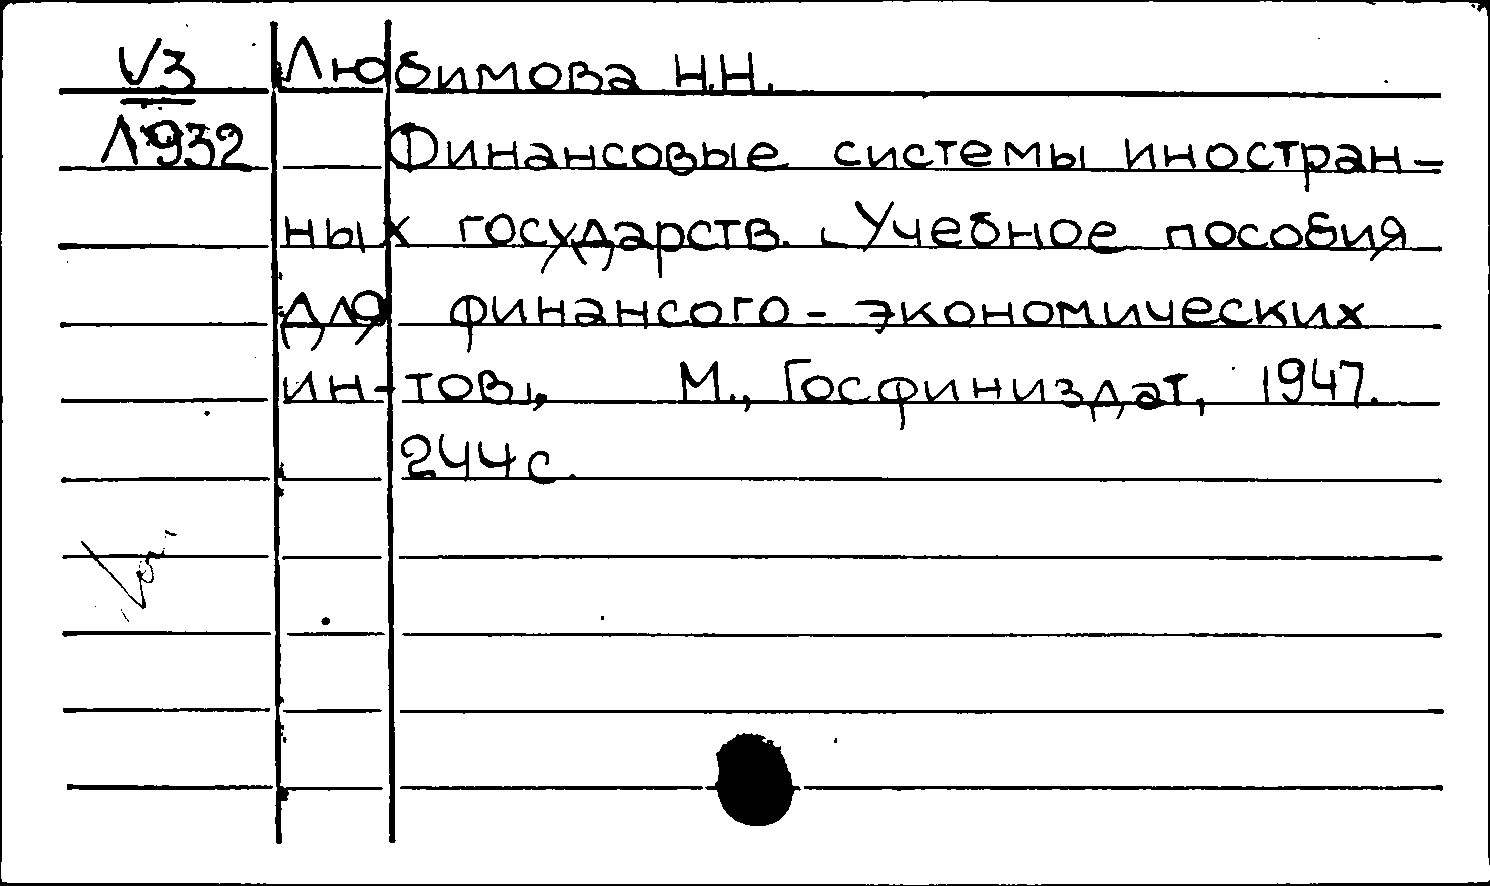 V3 Любимова Н.Н.
Л932 Финансовые системы иностран-
ных государств. Учебное пособия
для финансого-экономических
ин-тов, М., Госфиниздат, 1947.
244 с.